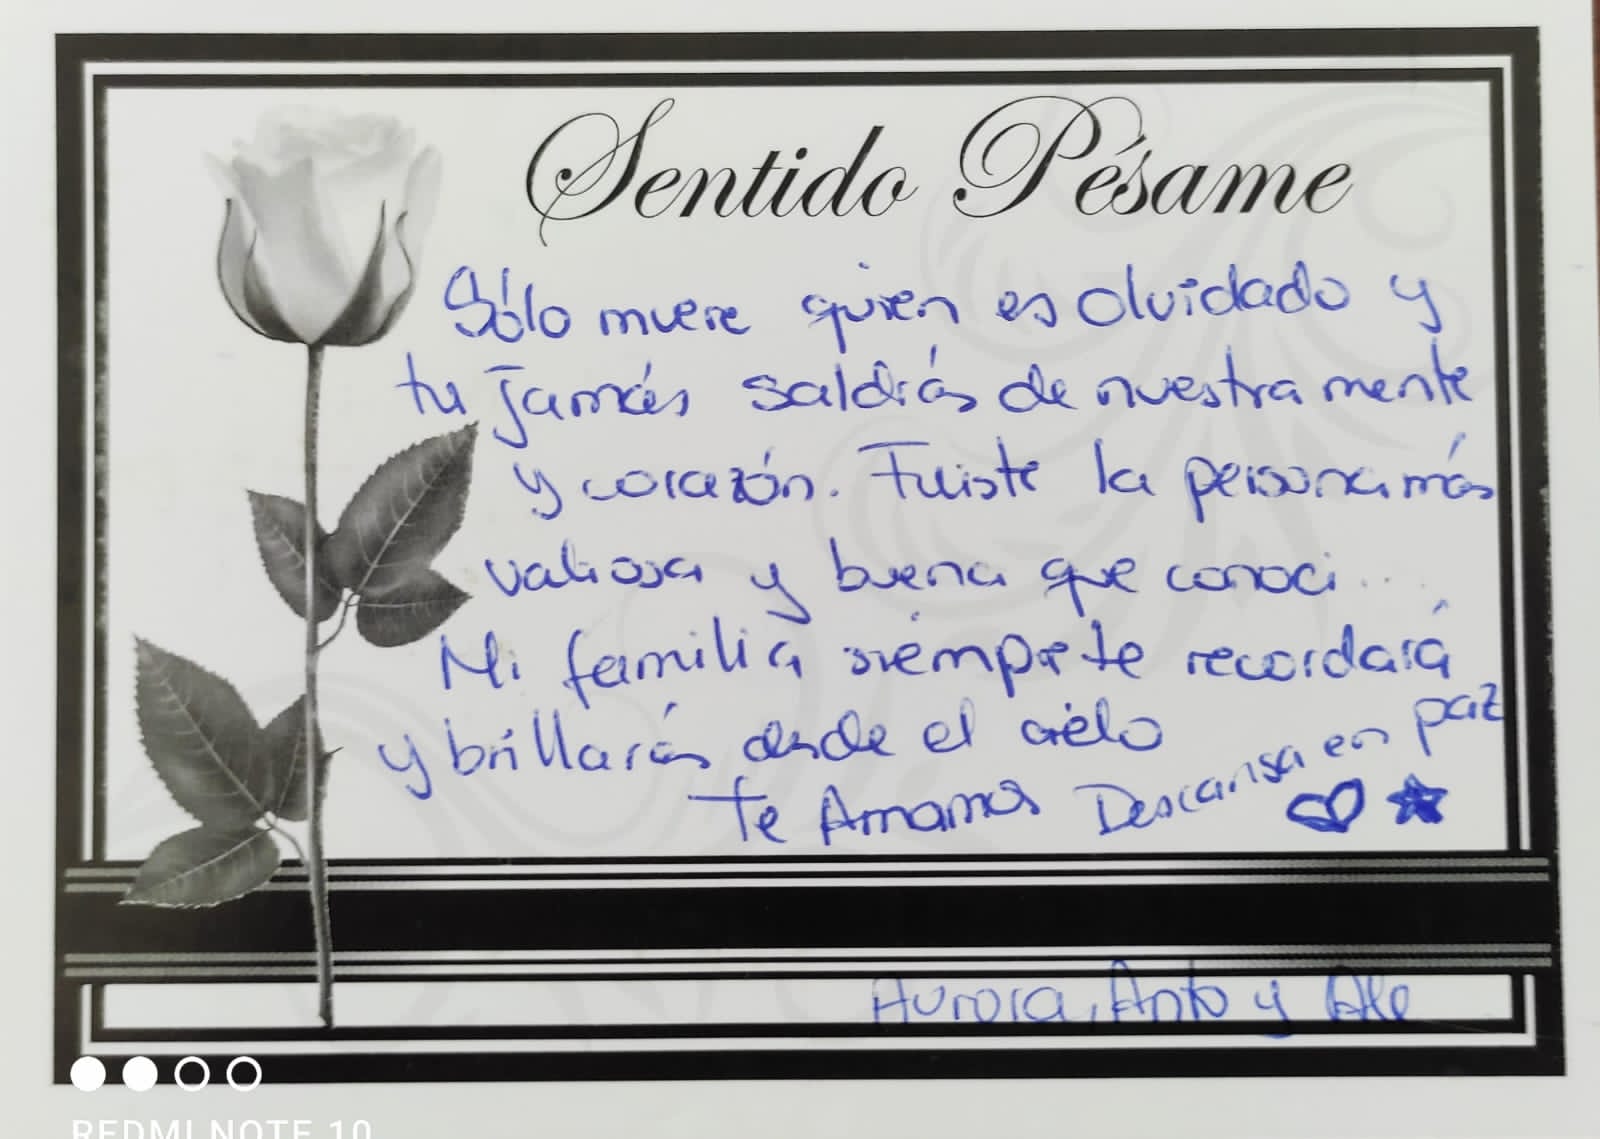 Sentido Pésame
Sólo muere quien es olvidado y
tu jamás saldrás de nuestra mente
y corazón. Fuiste la persona más
valiosa y buena que conoci...
Mi familia siempre te recordará
y brillarás desde el cielo
Te Amamos Descansa en paz
Aurora, Anto y Ale
REDMI NOTE 10